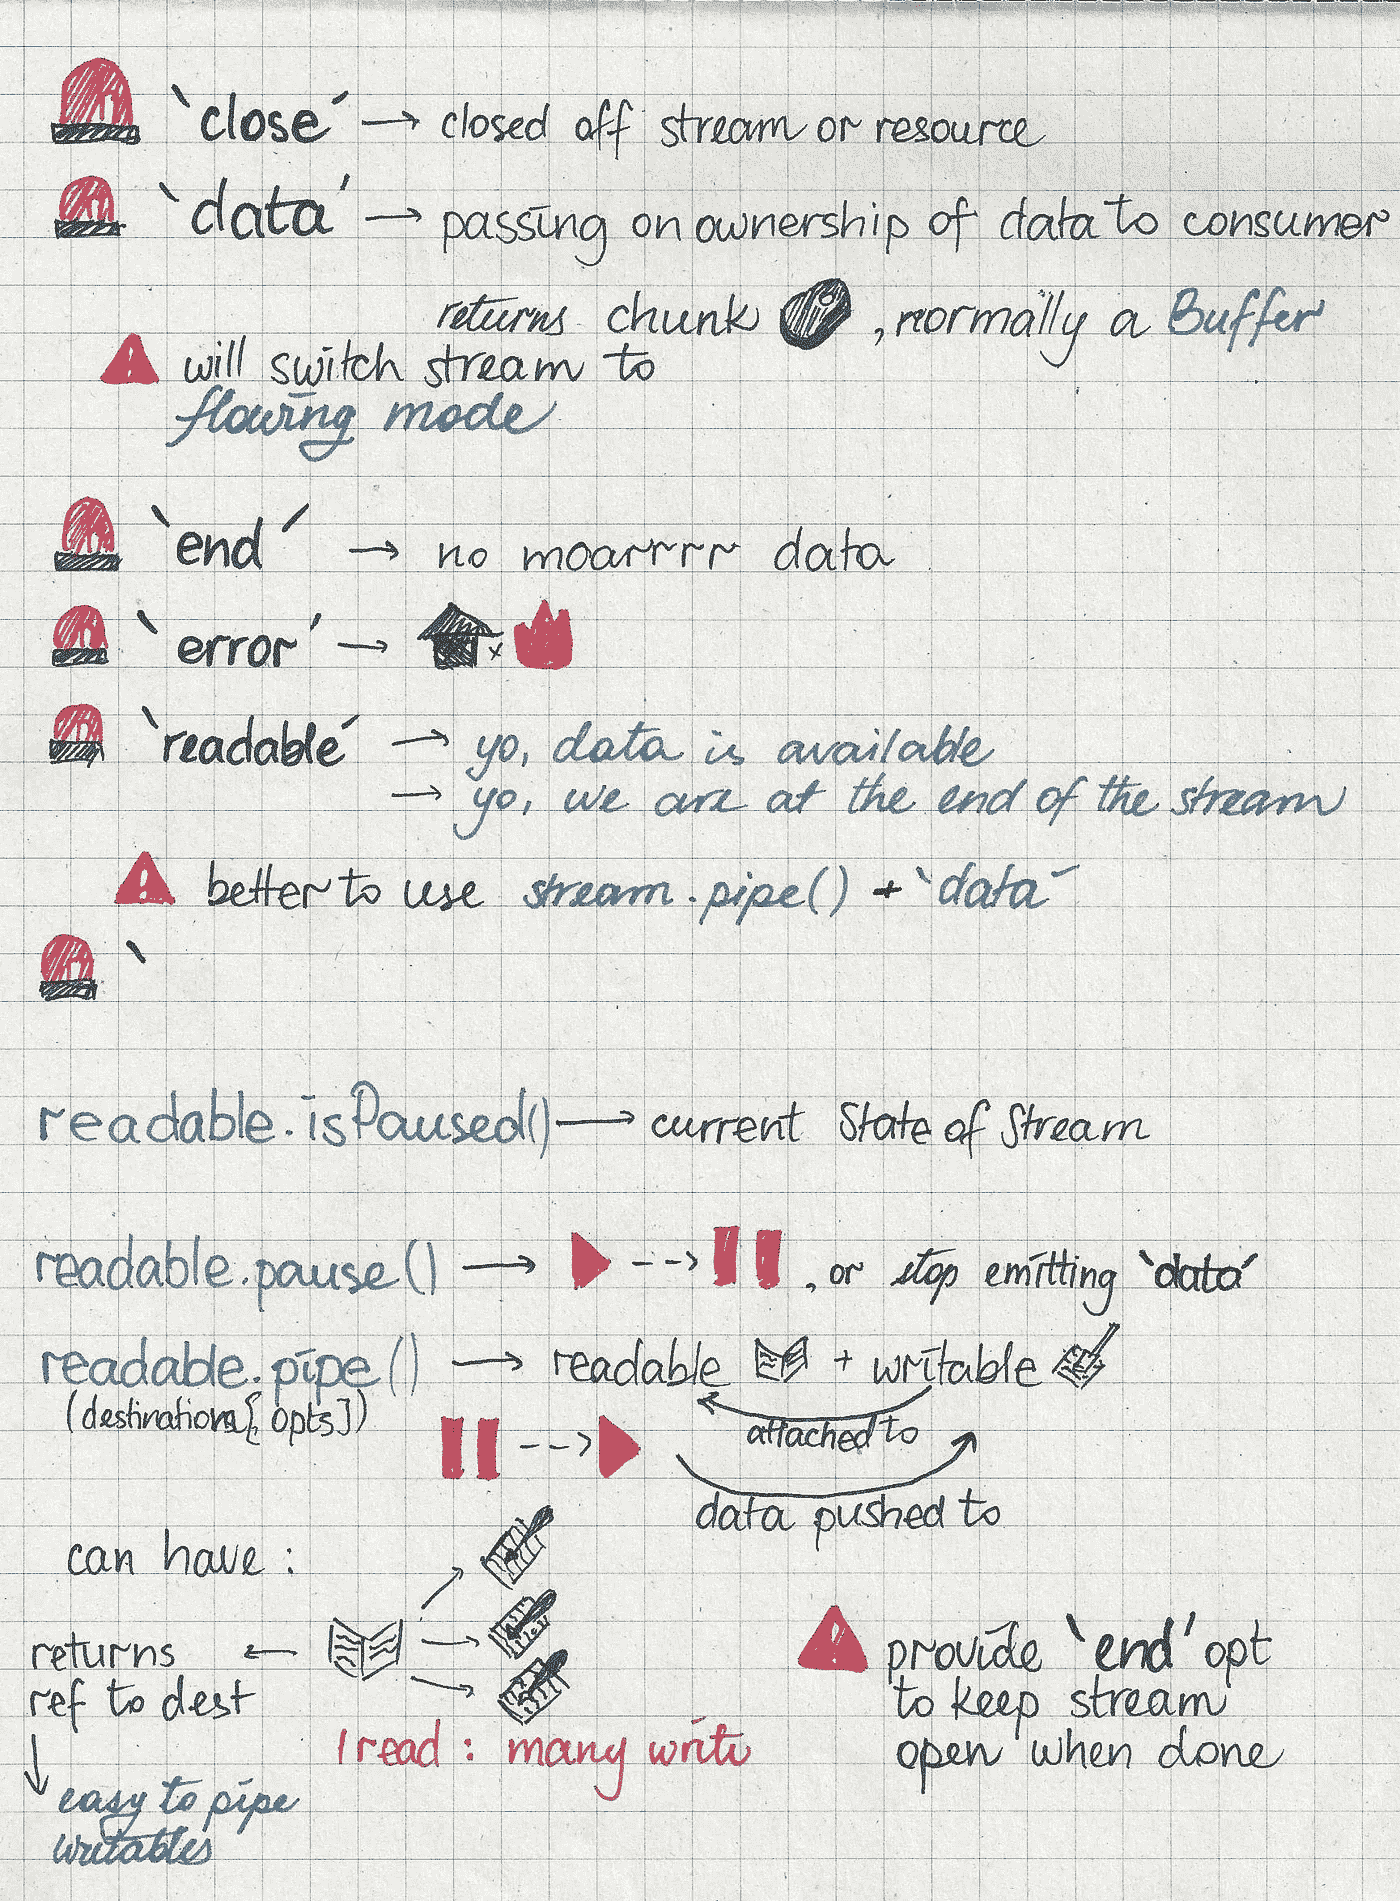 `close´ → closed off stream or resource
`data´ → passing on ownership of data to consumer
returns chunk , normally a Buffer
! will switch stream to
flowing mode
`end´ → no moarrrr data
`error´ → x
`readable´ → yo, data is available
→ yo, we are at the end of the stream
! better to use stream.pipe() + `data´
`
readable.isPaused() → current State of Stream
readable.pause() → --> , or stop emitting `data´
readable.pipe() → readable + writable
(destination[, opts])
--> attached to
data pushed to
can have :
returns ←
ref to dest
1 read : many write
↓
easy to pipe
writables
! provide `end´ opt
to keep stream
open when done